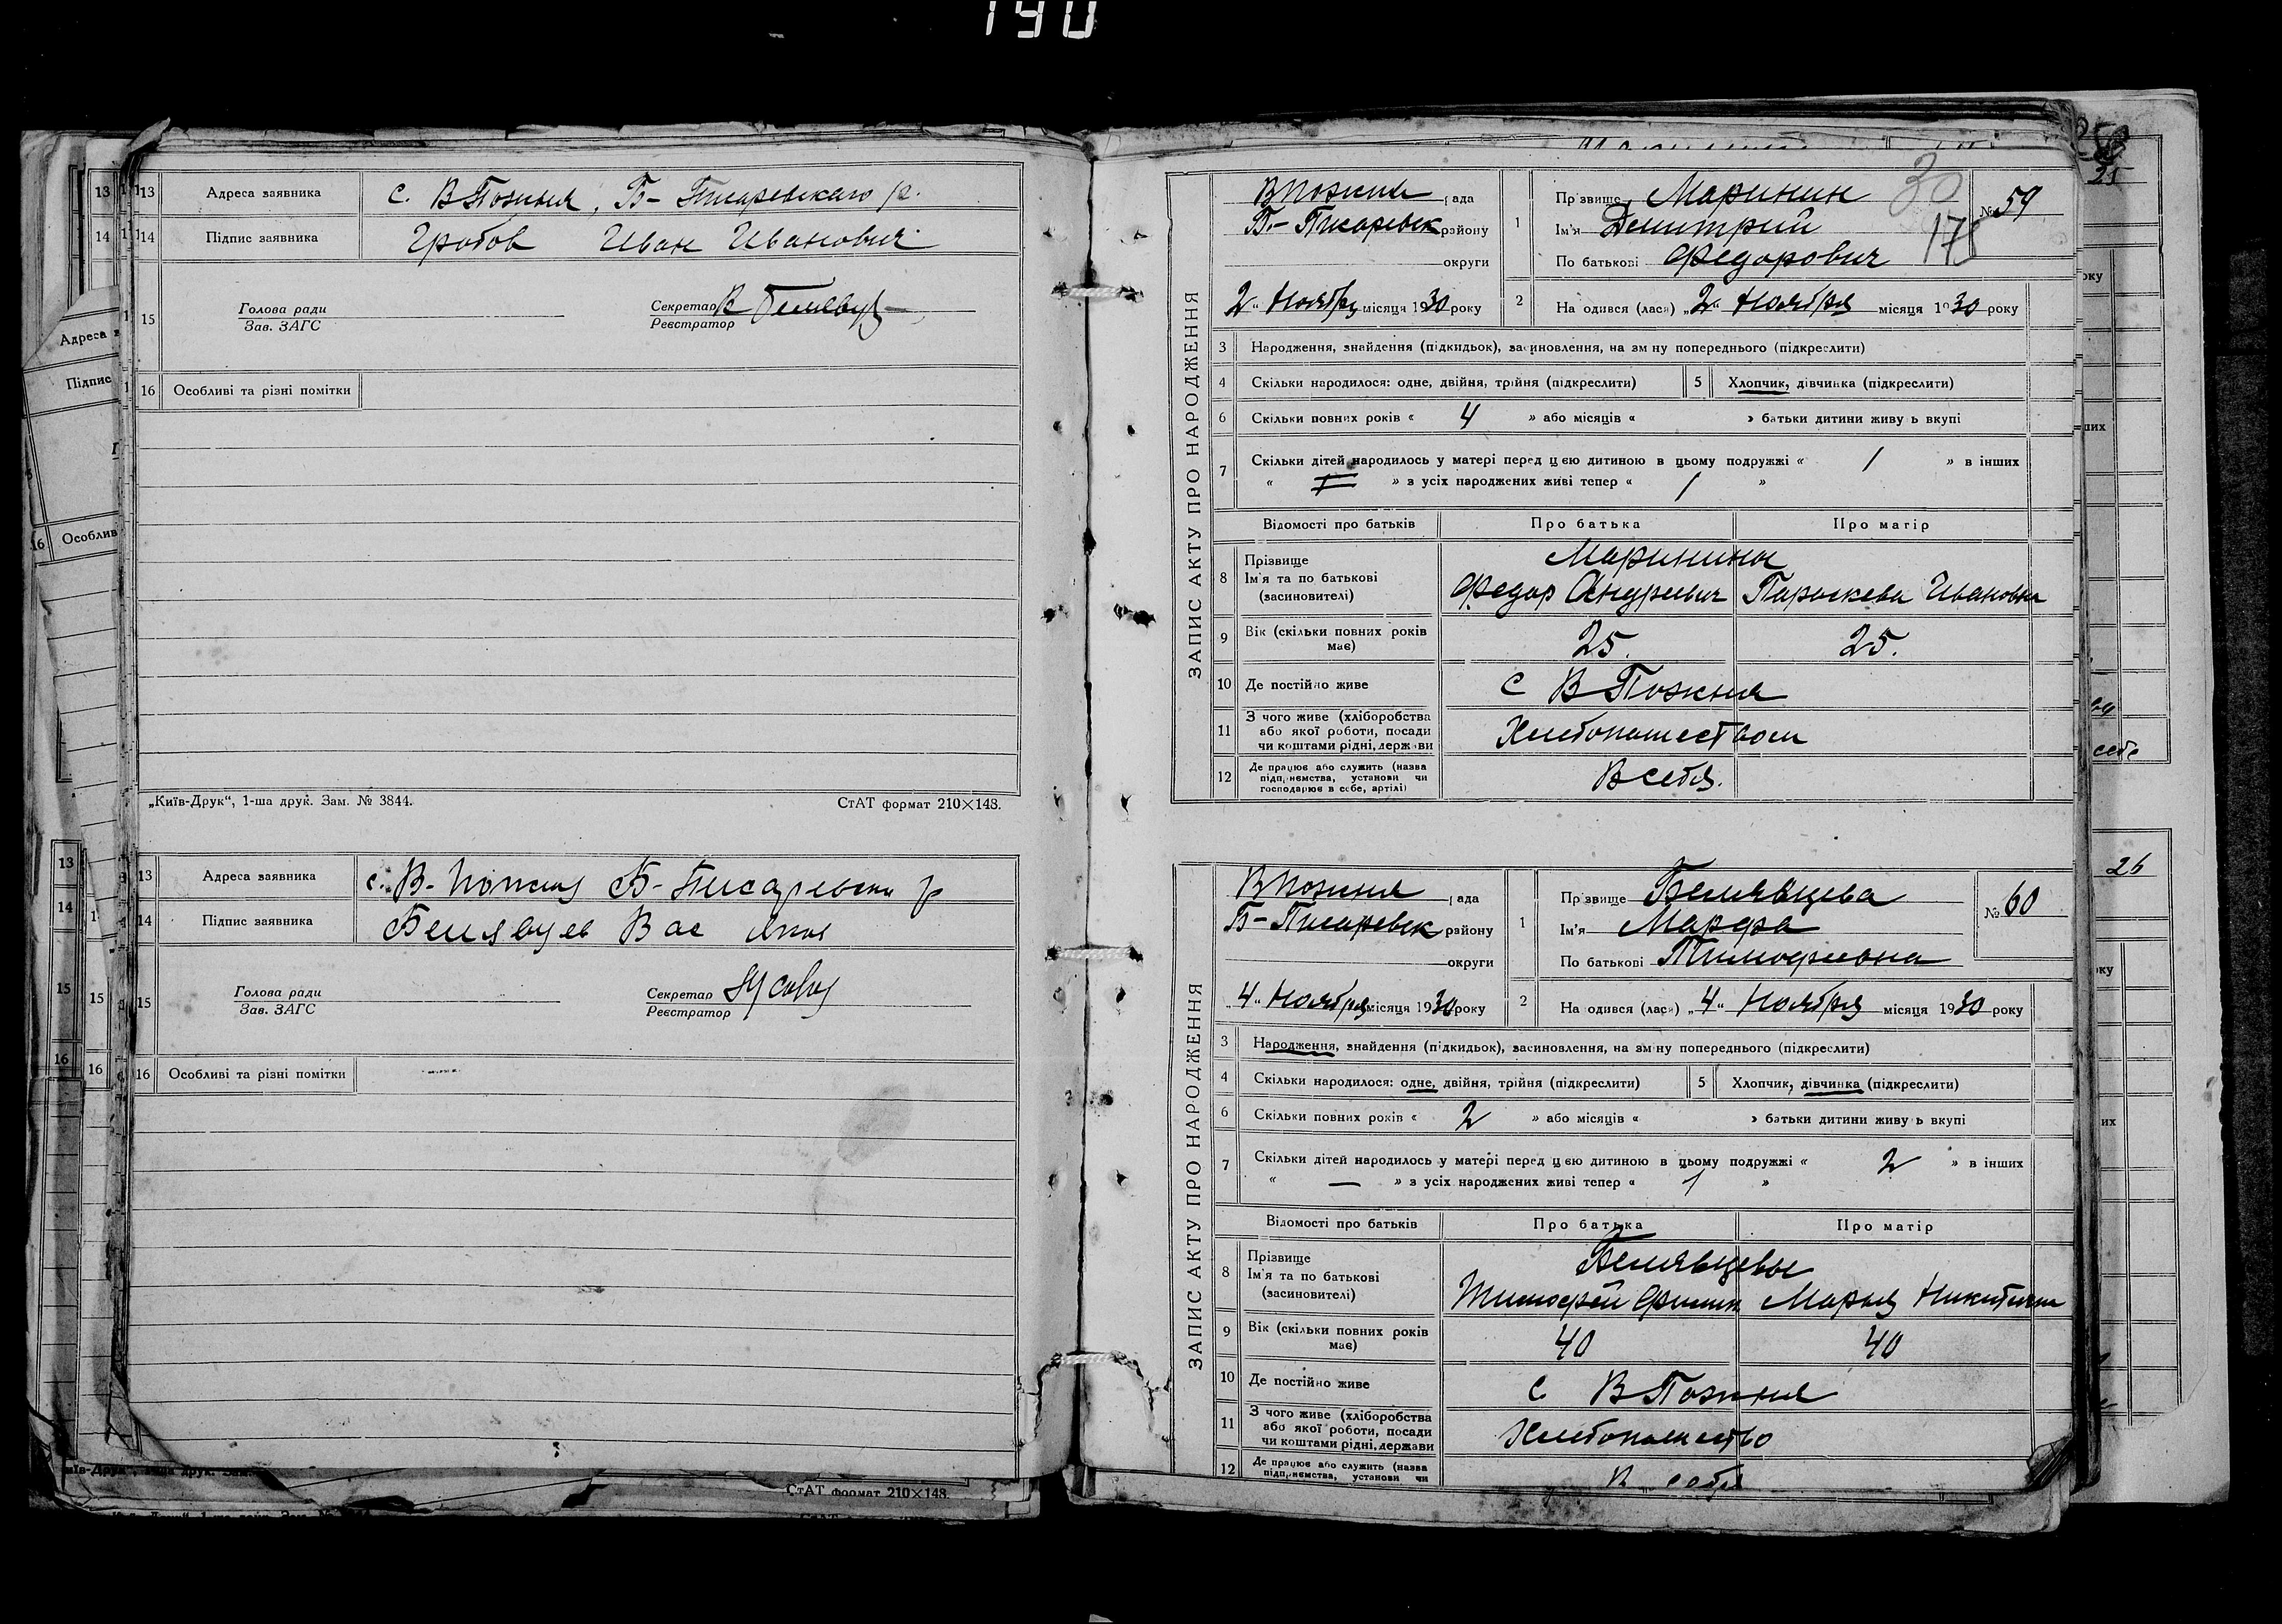 190
13 Адреса заявника с. В Пожня, Б- Писаревскаго р.
14 Підпис заявника Гробов Иван Иванович
15 Голова ради Секретар
Зав. ЗАГС Реєстратор
16 Особливі та різні помітки
„Київ-Друк“, 1-ша друк. Зам. № 3844. СтАТ формат 210×148.
13 Адреса заявника с. В- Пожня Б- Писаревски р
14 Підпис заявника Белявцев Вас
15 Голова ради Секретар
Зав. ЗАГС Реєстратор
16 Особливі та різні помітки
СтАТ формат 210×148.
ЗАПИС АКТУ ПРО НАРОДЖЕННЯ
В Пожня рада
Б.- Писаревск району
округи
„2“ Ноября місяця 1930 року
30
178
1 Прізвище Маринин № 59
Ім'я Дмитрий
По батькові Федорович
2 Народився (лася) „2“ Ноября місяця 1930 року
3 Народження, знайдення (підкидьок), засиновлення, на зміну попереднього (підкреслити)
4 Скільки народилося: одне, двійня, трійня (підкреслити) 5 Хлопчик, дівчинка (підкреслити)
6 Скільки повних років « 4 » або місяців « » батьки дитини живуть вкупі
7 Скільки дітей народилось у матері перед цією дитиною в цьому подружжі « 1 » в інших
« » з усіх народжених живі тепер « 1 »
Відомості про батьків Про батька Про матір
8 Прізвище Маринины
Ім'я та по батькові Федор Андреевич Параскева Ивановна
(засиновителі)
9 Вік (скільки повних років має) 25. 25.
10 Де постійно живе с В Пожня
11 З чого живе (хліборобства
або якої роботи, посади Хлебопашеством
чи коштами рідні, держави
12 Де працює або служить (назва
підприємства, установи чи В себя.
господарює в себе, артілі)
ЗАПИС АКТУ ПРО НАРОДЖЕННЯ
В Пожня рада
Б- Писаревск району
округи
„4“ Ноября місяця 1930 року
1 Прізвище Белявцева № 60
Ім'я Марфа
По батькові Тимофеевна
2 Народився (лася) „4“ Ноября місяця 1930 року
3 Народження, знайдення (підкидьок), засиновлення, на зміну попереднього (підкреслити)
4 Скільки народилося: одне, двійня, трійня (підкреслити) 5 Хлопчик, дівчинка (підкреслити)
6 Скільки повних років « 2 » або місяців « » батьки дитини живуть вкупі
7 Скільки дітей народилось у матері перед цією дитиною в цьому подружжі « 2 » в інших
« — » з усіх народжених живі тепер « 1 »
Відомості про батьків Про батька Про матір
8 Прізвище Белявцевы
Ім'я та по батькові Тимофей Филип Марья Никитична
(засиновителі)
9 Вік (скільки повних років має) 40 40
10 Де постійно живе с В Пожня
11 З чого живе (хліборобства
або якої роботи, посади Хлебопашество
чи коштами рідні, держави
12 Де працює або служить (назва
підприємства, установи чи В себя